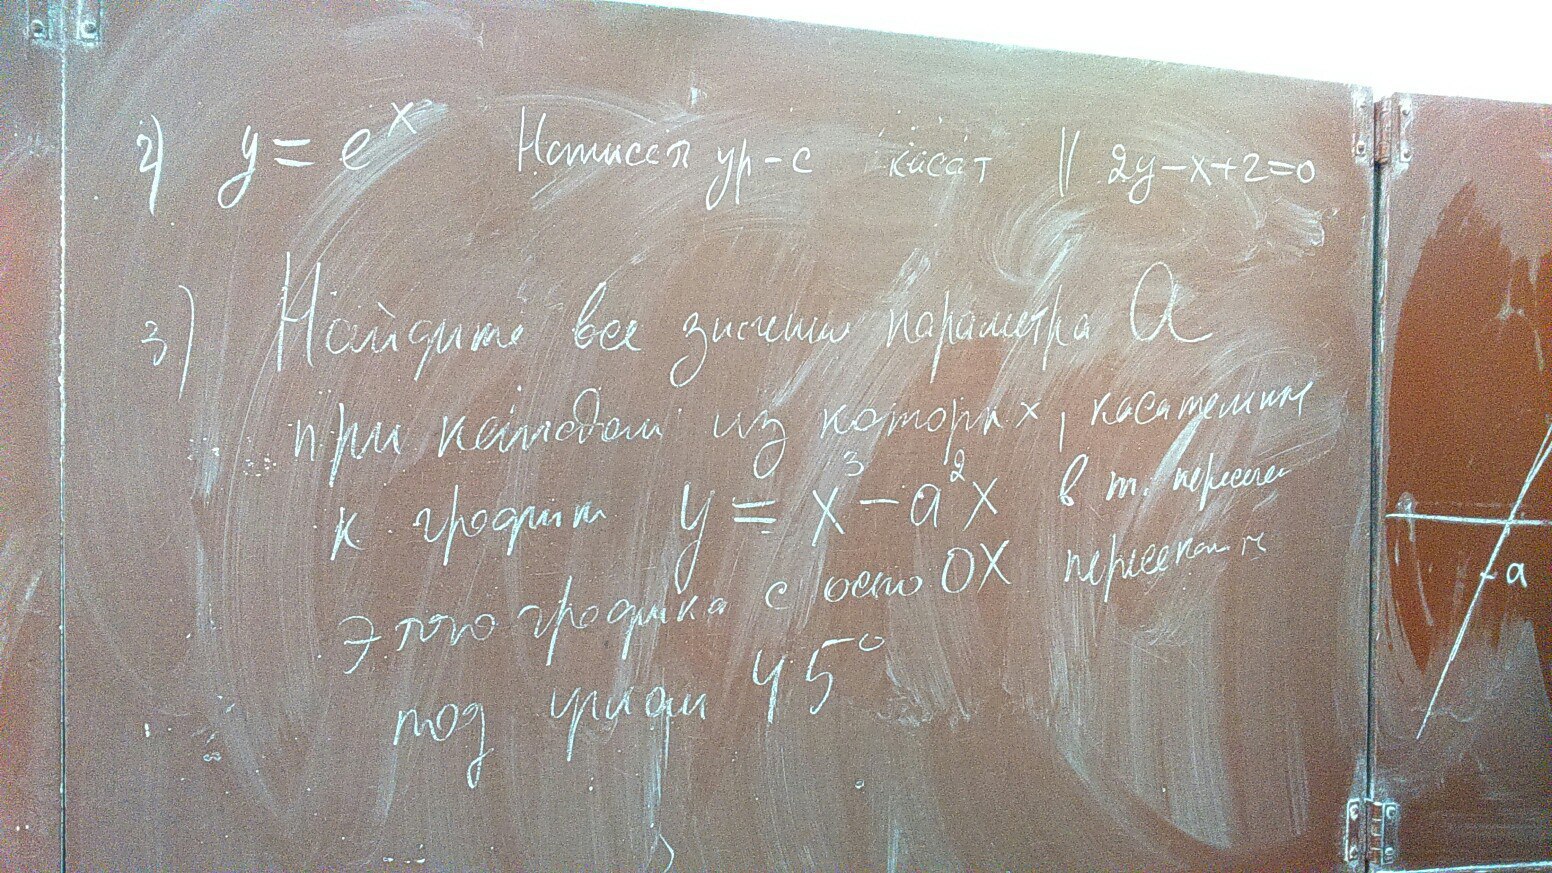 2) y = eˣ Написат ур-е касат || 2y-x+2=0
3) Найдите все значени параметра a
при каждом из которых, касательные
к графику y = x³ - a²x в т. пересеч
этого графика с осью OX пересекают
под углом 45°
-a